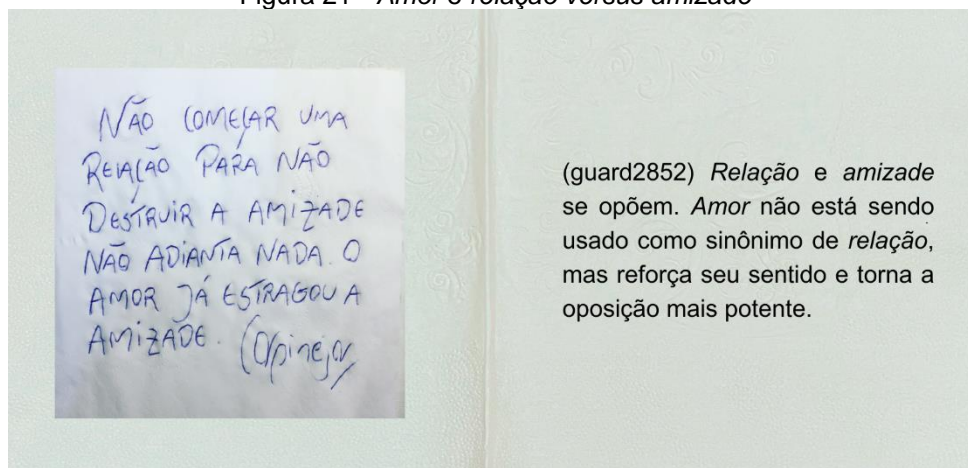 Figura 21 - Amor e relação versus amizade
NÃO COMEÇAR UMA
RELAÇÃO PARA NÃO
DESTRUIR A AMIZADE
NÃO ADIANTA NADA. O
AMOR JÁ ESTRAGOU A
AMIZADE. Carpinejar
(guard2852) Relação e amizade
se opõem. Amor não está sendo
usado como sinônimo de relação,
mas reforça seu sentido e torna a
oposição mais potente.